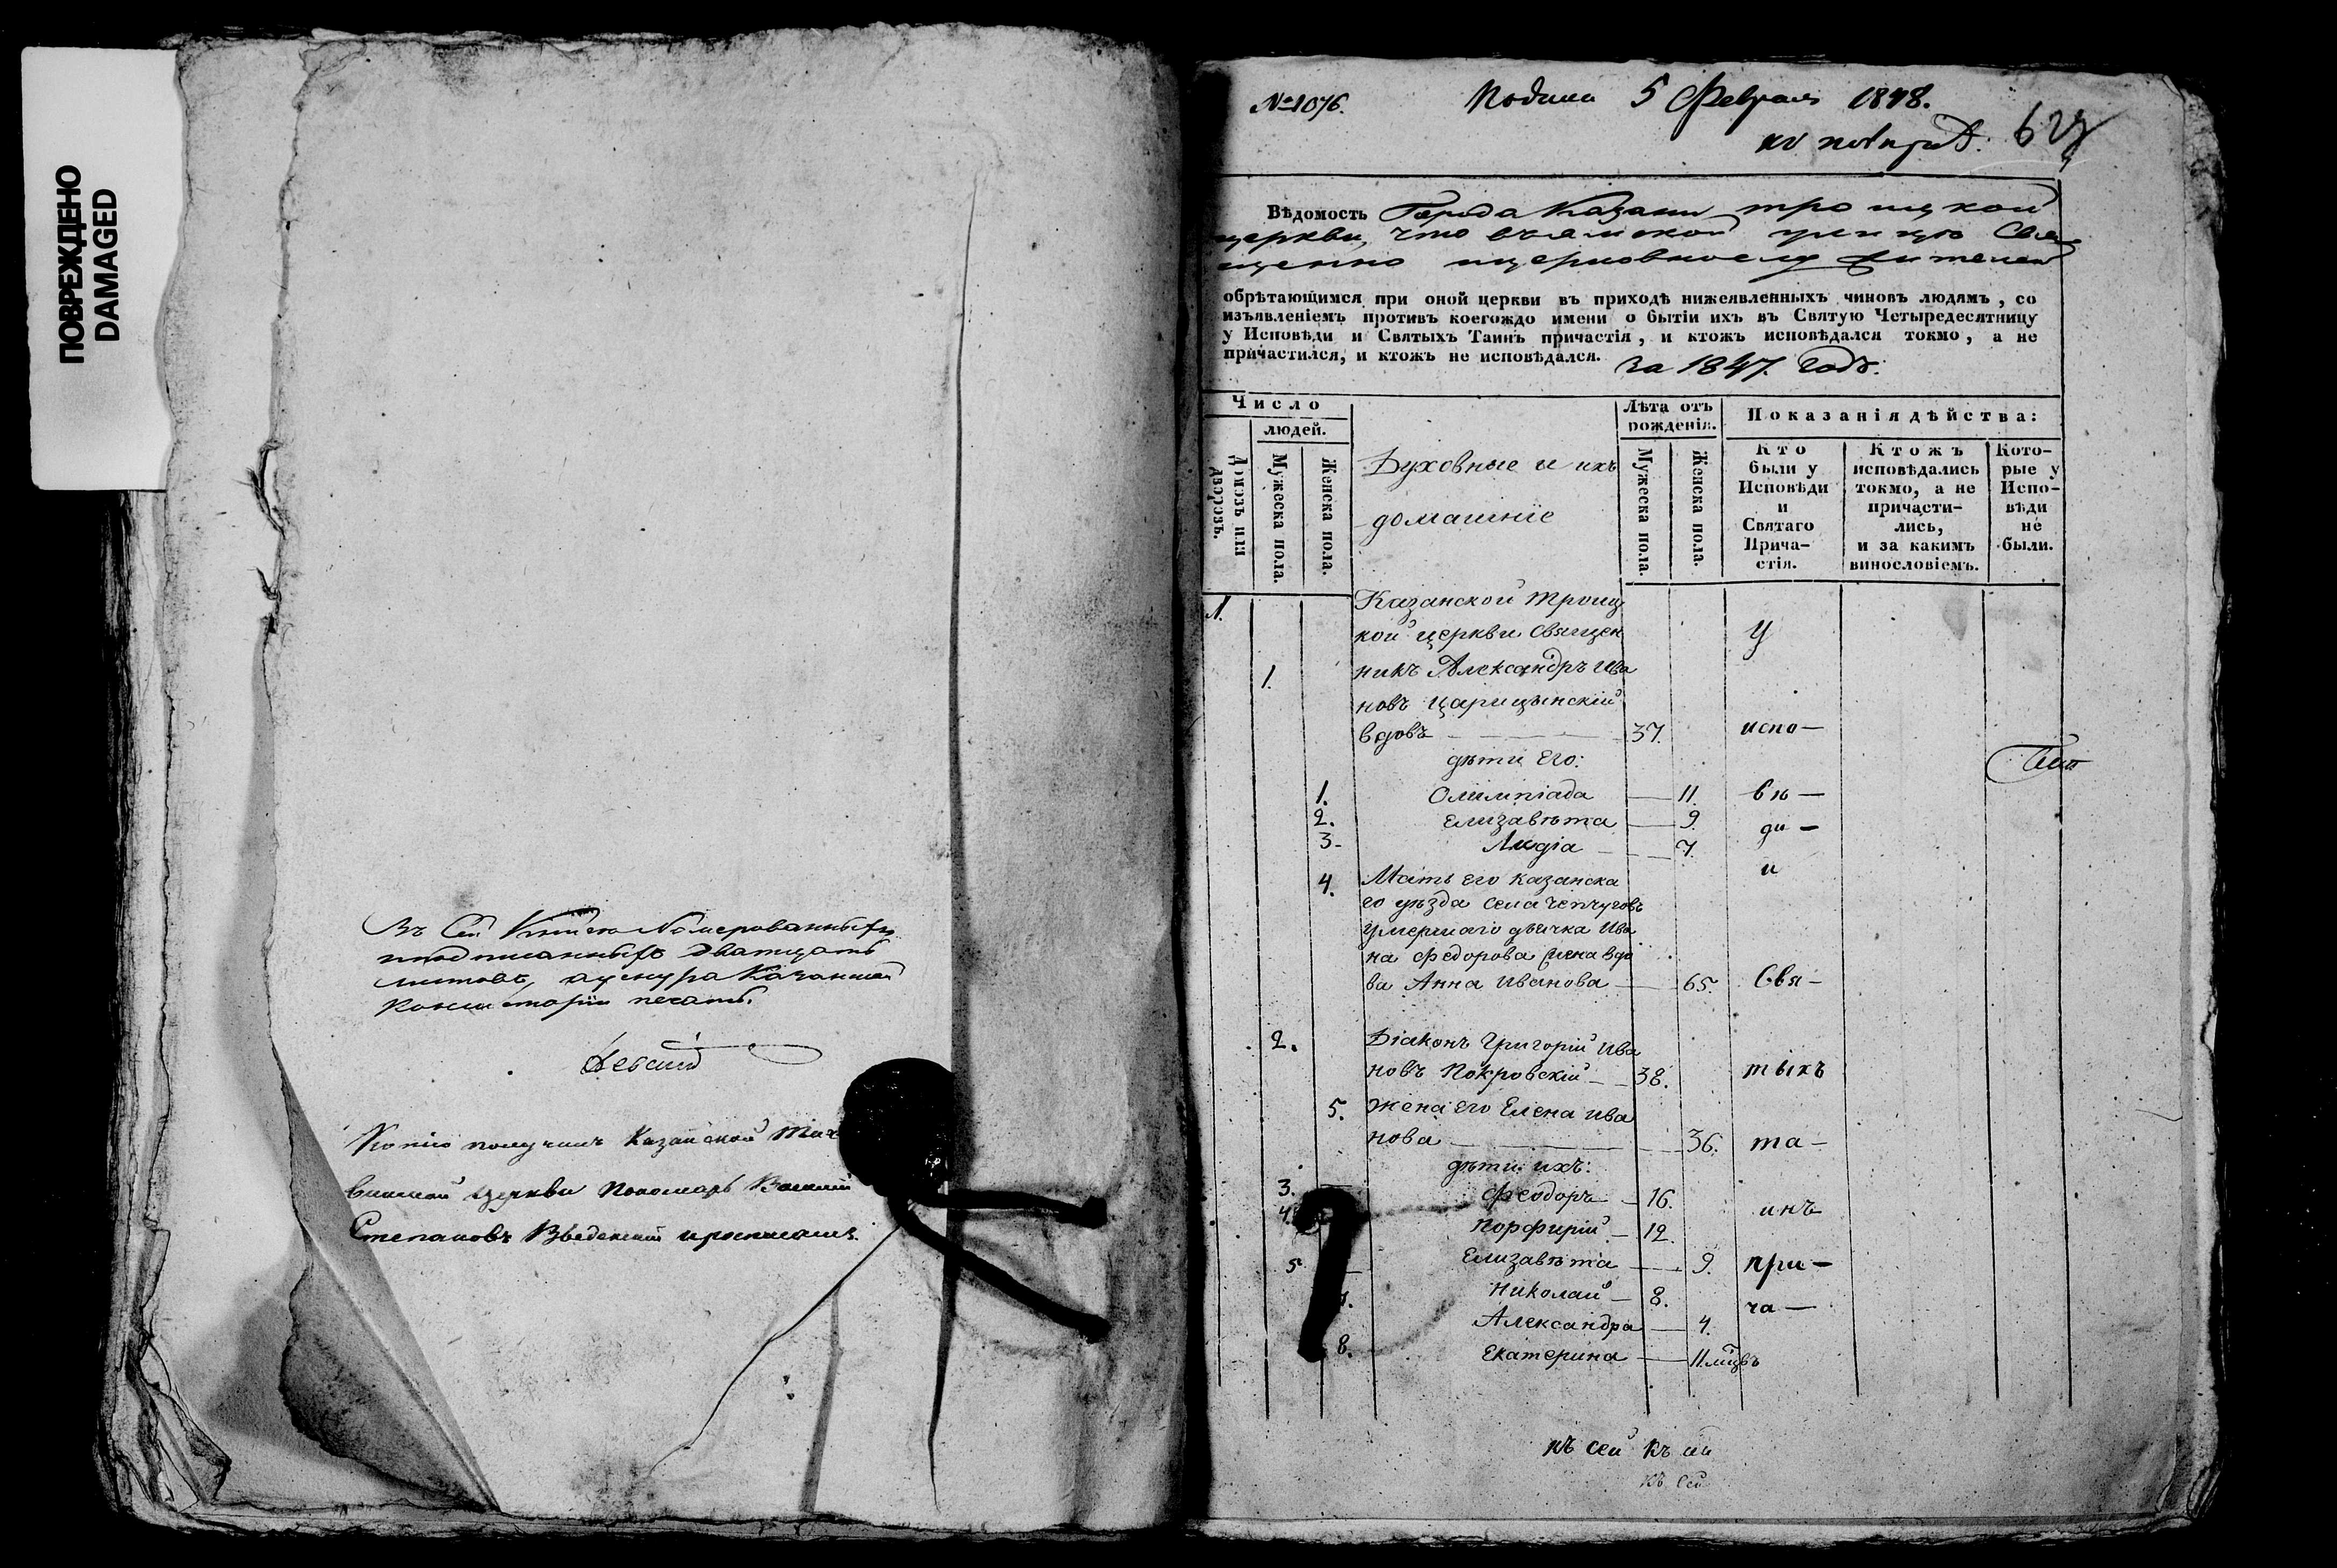 ПОВРЕЖДЕНО
DAMAGED
Въ сей
листовъ, Казанской
Консисторіи печать.
Копію получилъ Казанской
церкви Пономарь Василій
Степановъ Введенскій
№ 1076.
Подана 5 Февраля 1848.
Вѣдомость Города Казани троицкой
церкви, что въ ямской улицѣ Свя
щенно церковно
обрѣтающимся при оной церкви въ приходѣ нижеявленныхъ чиновъ людямъ, со
изъявленіемъ противъ коегождо имени о бытіи ихъ въ Святую Четыредесятницу
у Исповѣди и Святыхъ Таинъ причастія, и ктожъ исповѣдался токмо, а не
причастился, и ктожъ не исповѣдался. За 1847. годъ.
Число
людей.
Домовъ или дворовъ.
Мужеска пола.
Женска пола.
Духовные и ихъ
домашніе
Лѣта отъ
рожденія.
Мужеска пола.
Женска пола.
Показанія дѣйства:
Кто
были у
Исповѣди
и
Святаго
Прича-
стія.
Ктожъ
исповѣдались
токмо, а не
причасти-
лись,
и за какимъ
винословіемъ.
Кото-
рые у
Испо-
вѣди
не
были.
1.
Казанской Троиц
кой церкви Священ
У
1. никъ Александръ Ива
новъ Царицынскій
вдовъ 37. испо-
дѣти его:
1. Олимпіада 11. вѣ-
2. Елизавѣта 9. ди-
3. Лидіа 7.
и
4. Мать его казанска
го уѣзда села Чепчуговъ
умершаго дьячка Ива
на Федорова жена вдо
ва Анна Иванова 65. Свя-
2. Діаконъ Григорій Ива
новъ Покровскій 38. тыхъ
5. Жена его Елена Ива
нова 36. та-
дѣти ихъ:
3. Феодоръ 16. инъ
4. Порфирій 12.
Елизавѣта 9. при-
5 Николай 8.
7. Александра 4. ча-
8. Екатерина 11. мцвъ
къ сей къ
къ сей